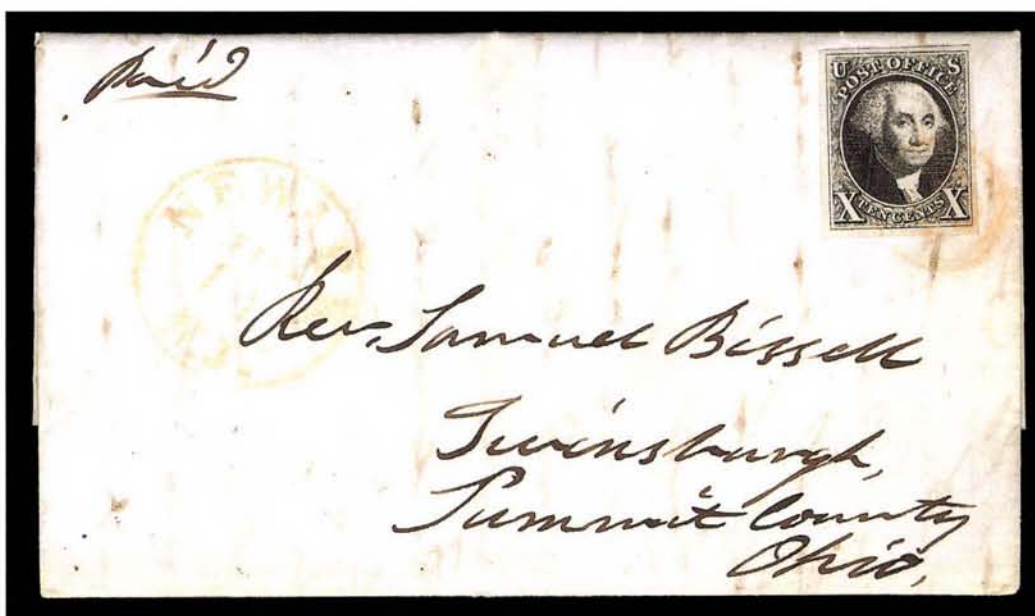 paid
U S
POST OFFICE
X TEN CENTS X
NEW
Rev. Samuel Bissell
Twinsburgh,
Summit County
Ohio,